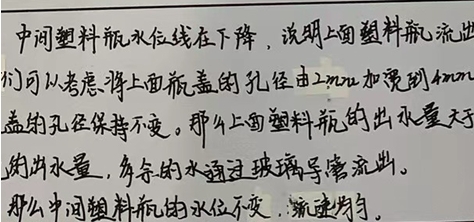 中间塑料瓶水位线在下降，说明上面塑料瓶流出
们可以考虑将上面瓶盖的孔径由2mm加宽到4mm
盖的孔径保持不变。那么上面塑料瓶的出水量大于
的出水量，多余的水通过玻璃导管流出。
那么中间塑料瓶的水位不变，流速均匀。